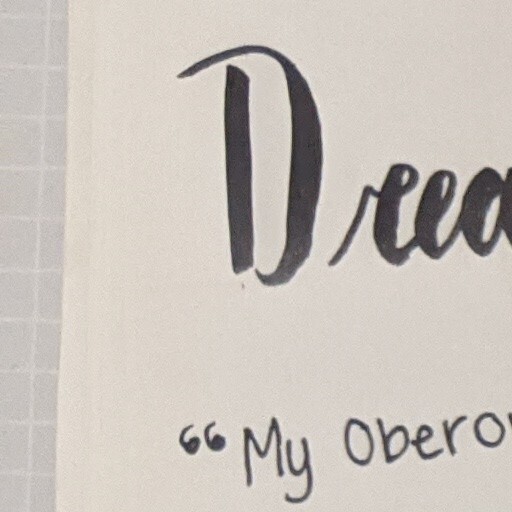 Drea
“My Obero